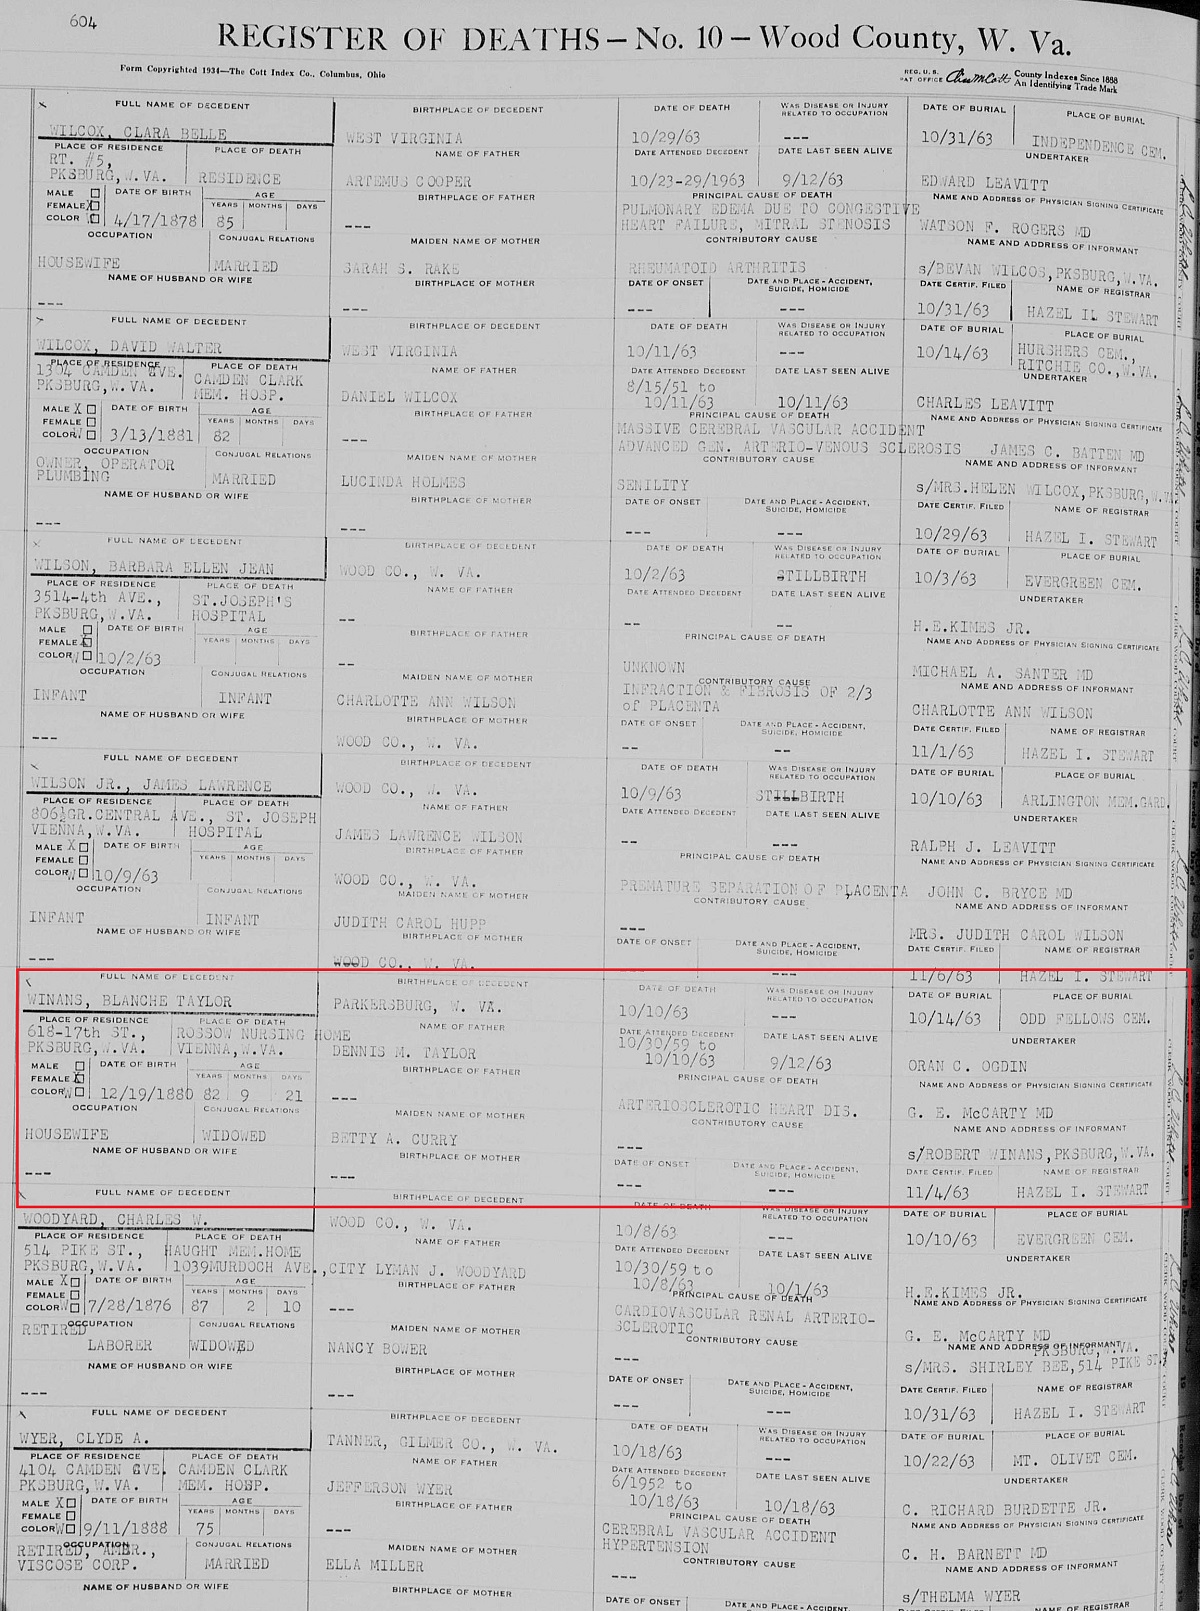 604
REGISTER OF DEATHS — No. 10 — Wood County, W. Va.
Form Copyrighted 1934—The Cott Index Co., Columbus, Ohio
REG. U. S. PAT OFFICE
County Indexes Since 1888
An Identifying Trade Mark
FULL NAME OF DECEDENT
WILCOX, CLARA BELLE
PLACE OF RESIDENCE PLACE OF DEATH
RT. #5,
PKSBURG,W.VA. RESIDENCE
MALE DATE OF BIRTH AGE
FEMALE X YEARS MONTHS DAYS
COLOR W 4/17/1878 85
OCCUPATION CONJUGAL RELATIONS
HOUSEWIFE MARRIED
NAME OF HUSBAND OR WIFE
---
BIRTHPLACE OF DECEDENT
WEST VIRGINIA
NAME OF FATHER
ARTEMUS COOPER
BIRTHPLACE OF FATHER
---
MAIDEN NAME OF MOTHER
SARAH S. RAKE
BIRTHPLACE OF MOTHER
---
DATE OF DEATH WAS DISEASE OR INJURY RELATED TO OCCUPATION
10/29/63 ---
DATE ATTENDED DECEDENT DATE LAST SEEN ALIVE
10/23-29/1963 9/12/63
PRINCIPAL CAUSE OF DEATH
PULMONARY EDEMA DUE TO CONGESTIVE
HEART FAILURE, MITRAL STENOSIS
CONTRIBUTORY CAUSE
RHEUMATOID ARTHRITIS
DATE OF ONSET DATE AND PLACE - ACCIDENT, SUICIDE, HOMICIDE
--- ---
DATE OF BURIAL PLACE OF BURIAL
10/31/63 INDEPENDENCE CEM.
UNDERTAKER
EDWARD LEAVITT
NAME AND ADDRESS OF PHYSICIAN SIGNING CERTIFICATE
WATSON F. ROGERS MD
NAME AND ADDRESS OF INFORMANT
s/BEVAN WILCOS,PKSBURG,W.VA.
DATE CERTIF. FILED NAME OF REGISTRAR
10/31/63 HAZEL IL STEWART
FULL NAME OF DECEDENT
WILCOX, DAVID WALTER
PLACE OF RESIDENCE PLACE OF DEATH
1304 CAMDEN AVE. CAMDEN CLARK
PKSBURG,W.VA. MEM. HOSP.
MALE X DATE OF BIRTH AGE
FEMALE YEARS MONTHS DAYS
COLOR W 3/13/1881 82
OCCUPATION CONJUGAL RELATIONS
OWNER, OPERATOR
PLUMBING MARRIED
NAME OF HUSBAND OR WIFE
---
BIRTHPLACE OF DECEDENT
WEST VIRGINIA
NAME OF FATHER
DANIEL WILCOX
BIRTHPLACE OF FATHER
---
MAIDEN NAME OF MOTHER
LUCINDA HOLMES
BIRTHPLACE OF MOTHER
---
DATE OF DEATH WAS DISEASE OR INJURY RELATED TO OCCUPATION
10/11/63 ---
DATE ATTENDED DECEDENT DATE LAST SEEN ALIVE
8/15/51 to
10/11/63 10/11/63
PRINCIPAL CAUSE OF DEATH
MASSIVE CEREBRAL VASCULAR ACCIDENT
ADVANCED GEN. ARTERIO-VENOUS SCLEROSIS
CONTRIBUTORY CAUSE
SENILITY
DATE OF ONSET DATE AND PLACE - ACCIDENT, SUICIDE, HOMICIDE
--- ---
DATE OF BURIAL PLACE OF BURIAL
10/14/63 HURSHERS CEM.,
RITCHIE CO.,W.VA.
UNDERTAKER
CHARLES LEAVITT
NAME AND ADDRESS OF PHYSICIAN SIGNING CERTIFICATE
JAMES C. BATTEN MD
NAME AND ADDRESS OF INFORMANT
s/MRS.HELEN WILCOX,PKSBURG,W.VA
DATE CERTIF. FILED NAME OF REGISTRAR
10/29/63 HAZEL I. STEWART
FULL NAME OF DECEDENT
WILSON, BARBARA ELLEN JEAN
PLACE OF RESIDENCE PLACE OF DEATH
3514-4th AVE., ST.JOSEPH'S
PKSBURG,W.VA. HOSPITAL
MALE DATE OF BIRTH AGE
FEMALE X YEARS MONTHS DAYS
COLOR W 10/2/63
OCCUPATION CONJUGAL RELATIONS
INFANT INFANT
NAME OF HUSBAND OR WIFE
---
BIRTHPLACE OF DECEDENT
WOOD CO., W. VA.
NAME OF FATHER
--
BIRTHPLACE OF FATHER
--
MAIDEN NAME OF MOTHER
CHARLOTTE ANN WILSON
BIRTHPLACE OF MOTHER
WOOD CO., W. VA.
DATE OF DEATH WAS DISEASE OR INJURY RELATED TO OCCUPATION
10/2/63 STILLBIRTH
DATE ATTENDED DECEDENT DATE LAST SEEN ALIVE
-- ---
PRINCIPAL CAUSE OF DEATH
UNKNOWN
CONTRIBUTORY CAUSE
INFRACTION & FIBROSIS OF 2/3
of PLACENTA
DATE OF ONSET DATE AND PLACE - ACCIDENT, SUICIDE, HOMICIDE
-- --
DATE OF BURIAL PLACE OF BURIAL
10/3/63 EVERGREEN CEM.
UNDERTAKER
H.E.KIMES JR.
NAME AND ADDRESS OF PHYSICIAN SIGNING CERTIFICATE
MICHAEL A. SANTER MD
NAME AND ADDRESS OF INFORMANT
CHARLOTTE ANN WILSON
DATE CERTIF. FILED NAME OF REGISTRAR
11/1/63 HAZEL I. STEWART
FULL NAME OF DECEDENT
WILSON JR., JAMES LAWRENCE
PLACE OF RESIDENCE PLACE OF DEATH
806½GR.CENTRAL AVE., ST. JOSEPH
VIENNA,W.VA. HOSPITAL
MALE X DATE OF BIRTH AGE
FEMALE YEARS MONTHS DAYS
COLOR W 10/9/63
OCCUPATION CONJUGAL RELATIONS
INFANT INFANT
NAME OF HUSBAND OR WIFE
---
BIRTHPLACE OF DECEDENT
WOOD CO., W. VA.
NAME OF FATHER
JAMES LAWRENCE WILSON
BIRTHPLACE OF FATHER
WOOD CO., W. VA.
MAIDEN NAME OF MOTHER
JUDITH CAROL HUPP
BIRTHPLACE OF MOTHER
WOOD CO., W. VA.
DATE OF DEATH WAS DISEASE OR INJURY RELATED TO OCCUPATION
10/9/63 STILLBIRTH
DATE ATTENDED DECEDENT DATE LAST SEEN ALIVE
-- ---
PRINCIPAL CAUSE OF DEATH
PREMATURE SEPARATION OF PLACENTA
CONTRIBUTORY CAUSE
---
DATE OF ONSET DATE AND PLACE - ACCIDENT, SUICIDE, HOMICIDE
--- ---
DATE OF BURIAL PLACE OF BURIAL
10/10/63 ARLINGTON MEM.GARD.
UNDERTAKER
RALPH J. LEAVITT
NAME AND ADDRESS OF PHYSICIAN SIGNING CERTIFICATE
JOHN C. BRYCE MD
NAME AND ADDRESS OF INFORMANT
MRS. JUDITH CAROL WILSON
DATE CERTIF. FILED NAME OF REGISTRAR
11/6/63 HAZEL I. STEWART
FULL NAME OF DECEDENT
WINANS, BLANCHE TAYLOR
PLACE OF RESIDENCE PLACE OF DEATH
618-17th ST., ROSSOW NURSING HOME
PKSBURG,W.VA. VIENNA,W.VA.
MALE DATE OF BIRTH AGE
FEMALE X YEARS MONTHS DAYS
COLOR W 12/19/1880 82 9 21
OCCUPATION CONJUGAL RELATIONS
HOUSEWIFE WIDOWED
NAME OF HUSBAND OR WIFE
---
BIRTHPLACE OF DECEDENT
PARKERSBURG, W. VA.
NAME OF FATHER
DENNIS M. TAYLOR
BIRTHPLACE OF FATHER
---
MAIDEN NAME OF MOTHER
BETTY A. CURRY
BIRTHPLACE OF MOTHER
---
DATE OF DEATH WAS DISEASE OR INJURY RELATED TO OCCUPATION
10/10/63 ---
DATE ATTENDED DECEDENT DATE LAST SEEN ALIVE
10/30/59 to
10/10/63 9/12/63
PRINCIPAL CAUSE OF DEATH
ARTERIOSCLEROTIC HEART DIS.
CONTRIBUTORY CAUSE
---
DATE OF ONSET DATE AND PLACE - ACCIDENT, SUICIDE, HOMICIDE
--- ---
DATE OF BURIAL PLACE OF BURIAL
10/14/63 ODD FELLOWS CEM.
UNDERTAKER
ORAN C. OGDIN
NAME AND ADDRESS OF PHYSICIAN SIGNING CERTIFICATE
G. E. McCARTY MD
NAME AND ADDRESS OF INFORMANT
s/ROBERT WINANS,PKSBURG,W.VA.
DATE CERTIF. FILED NAME OF REGISTRAR
11/4/63 HAZEL I. STEWART
FULL NAME OF DECEDENT
WOODYARD, CHARLES W.
PLACE OF RESIDENCE PLACE OF DEATH
514 PIKE ST., HAUGHT MEM.HOME
PKSBURG,W.VA. 1039MURDOCH AVE.,CITY
MALE X DATE OF BIRTH AGE
FEMALE YEARS MONTHS DAYS
COLOR W 7/28/1876 87 2 10
OCCUPATION CONJUGAL RELATIONS
RETIRED
LABORER WIDOWED
NAME OF HUSBAND OR WIFE
---
BIRTHPLACE OF DECEDENT
WOOD CO., W. VA.
NAME OF FATHER
LYMAN J. WOODYARD
BIRTHPLACE OF FATHER
---
MAIDEN NAME OF MOTHER
NANCY BOWER
BIRTHPLACE OF MOTHER
---
DATE OF DEATH WAS DISEASE OR INJURY RELATED TO OCCUPATION
10/8/63 ---
DATE ATTENDED DECEDENT DATE LAST SEEN ALIVE
10/30/59 to
10/8/63 10/1/63
PRINCIPAL CAUSE OF DEATH
CARDIOVASCULAR RENAL ARTERIO-
SCLEROTIC
CONTRIBUTORY CAUSE
---
DATE OF ONSET DATE AND PLACE - ACCIDENT, SUICIDE, HOMICIDE
--- ---
DATE OF BURIAL PLACE OF BURIAL
10/10/63 EVERGREEN CEM.
UNDERTAKER
H.E.KIMES JR.
NAME AND ADDRESS OF PHYSICIAN SIGNING CERTIFICATE
G. E. McCARTY MD
NAME AND ADDRESS OF INFORMANT
PKSBURG,W.VA.
s/MRS. SHIRLEY BEE,514 PIKE ST.
DATE CERTIF. FILED NAME OF REGISTRAR
10/31/63 HAZEL I. STEWART
FULL NAME OF DECEDENT
WYER, CLYDE A.
PLACE OF RESIDENCE PLACE OF DEATH
4104 CAMDEN AVE. CAMDEN CLARK
PKSBURG,W.VA. MEM. HOSP.
MALE X DATE OF BIRTH AGE
FEMALE YEARS MONTHS DAYS
COLOR W 9/11/1888 75
OCCUPATION CONJUGAL RELATIONS
RETIRED, AMER.,
VISCOSE CORP. MARRIED
NAME OF HUSBAND OR WIFE
BIRTHPLACE OF DECEDENT
TANNER, GILMER CO., W. VA.
NAME OF FATHER
JEFFERSON WYER
BIRTHPLACE OF FATHER
---
MAIDEN NAME OF MOTHER
ELLA MILLER
BIRTHPLACE OF MOTHER
DATE OF DEATH WAS DISEASE OR INJURY RELATED TO OCCUPATION
10/18/63 ---
DATE ATTENDED DECEDENT DATE LAST SEEN ALIVE
6/1952 to
10/18/63 10/18/63
PRINCIPAL CAUSE OF DEATH
CEREBRAL VASCULAR ACCIDENT
HYPERTENSION
CONTRIBUTORY CAUSE
---
DATE OF ONSET DATE AND PLACE - ACCIDENT,
DATE OF BURIAL PLACE OF BURIAL
10/22/63 MT. OLIVET CEM.
UNDERTAKER
C. RICHARD BURDETTE JR.
NAME AND ADDRESS OF PHYSICIAN SIGNING CERTIFICATE
C. H. BARNETT MD
NAME AND ADDRESS OF INFORMANT
s/THELMA WYER
NAME OF REGISTRAR